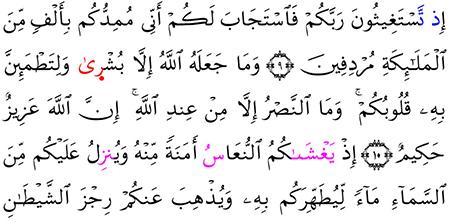 إِذ تَّسْتَغِيثُونَ رَبَّكُمْ فَٱسْتَجَابَ لَكُمْ أَنِّى مُمِدُّكُم بِأَلْفٍ مِّنَ
ٱلْمَلَـٰٓئِكَةِ مُرْدِفِينَ ﴿٩﴾ وَمَا جَعَلَهُ ٱللَّهُ إِلَّا بُشْرِىٰ وَلِتَطْمَئِنَّ
بِهِۦ قُلُوبُكُمْ ۚ وَمَا ٱلنَّصْرُ إِلَّا مِنْ عِندِ ٱللَّهِ ۚ إِنَّ ٱللَّهَ عَزِيزٌ
حَكِيمٌ ﴿١٠﴾ إِذْ يَغْشَـىٰكُمُ ٱلنُّعَاسُ أَمَنَةً مِّنْهُ وَيُنزِلُ عَلَيْكُم مِّنَ
ٱلسَّمَآءِ مَآءً لِّيُطَهِّرَكُم بِهِۦ وَيُذْهِبَ عَنكُمْ رِجْزَ ٱلشَّيْطَـٰنِ